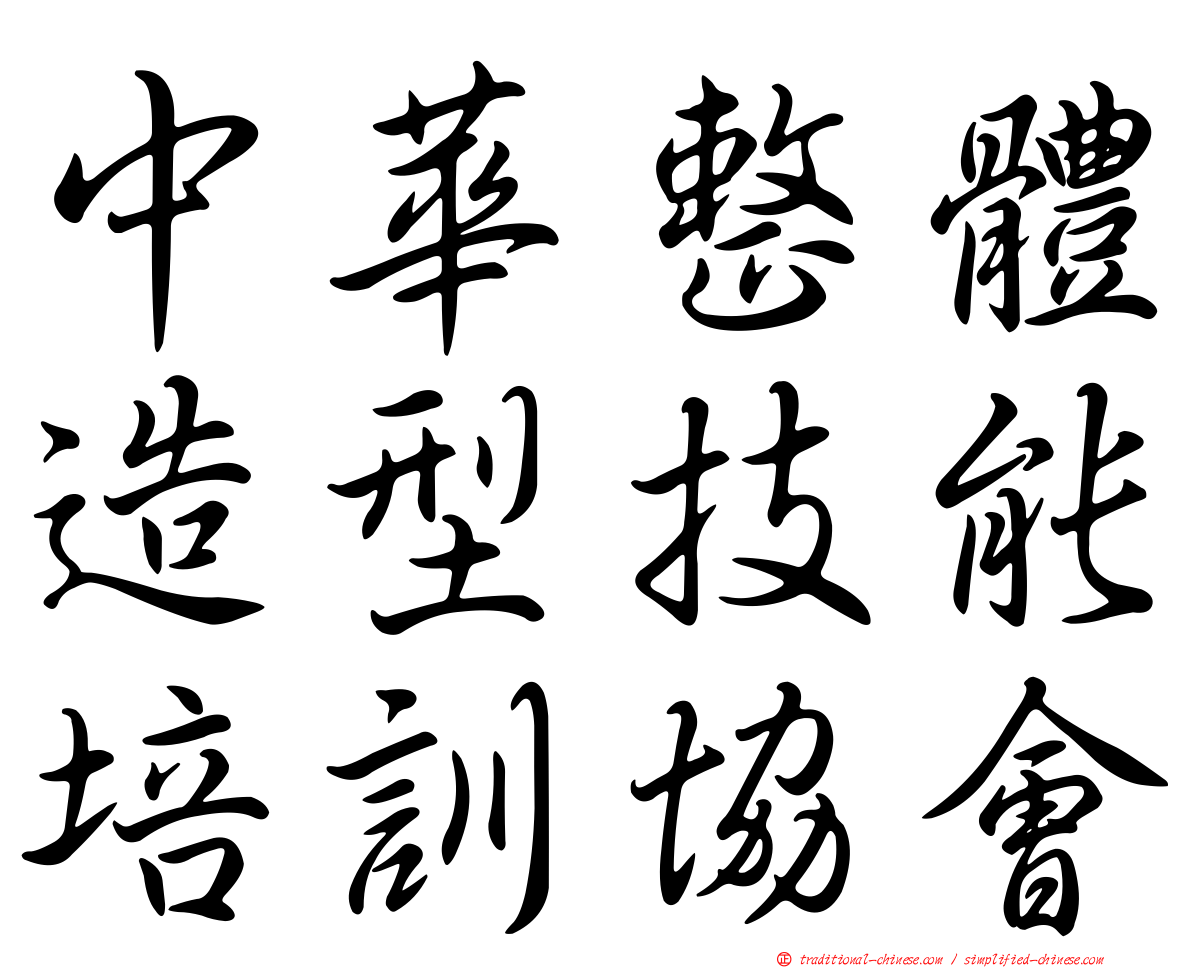 中華整體
造型技能
培訓協會
正 traditional-chinese.com / simplified-chinese.com